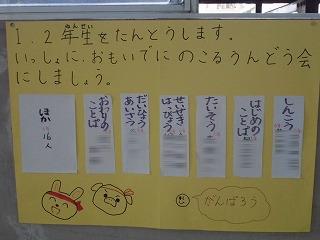 1.2年生をたんとうします。
いっしょに、おもいでにのこるうんどう会
にしましょう。
しんこう
はじめの
ことば
たいそう
せいせき
はっぴょう
だいひょう
あいさつ
おわりの
ことば
ほか
16人
がんばろう